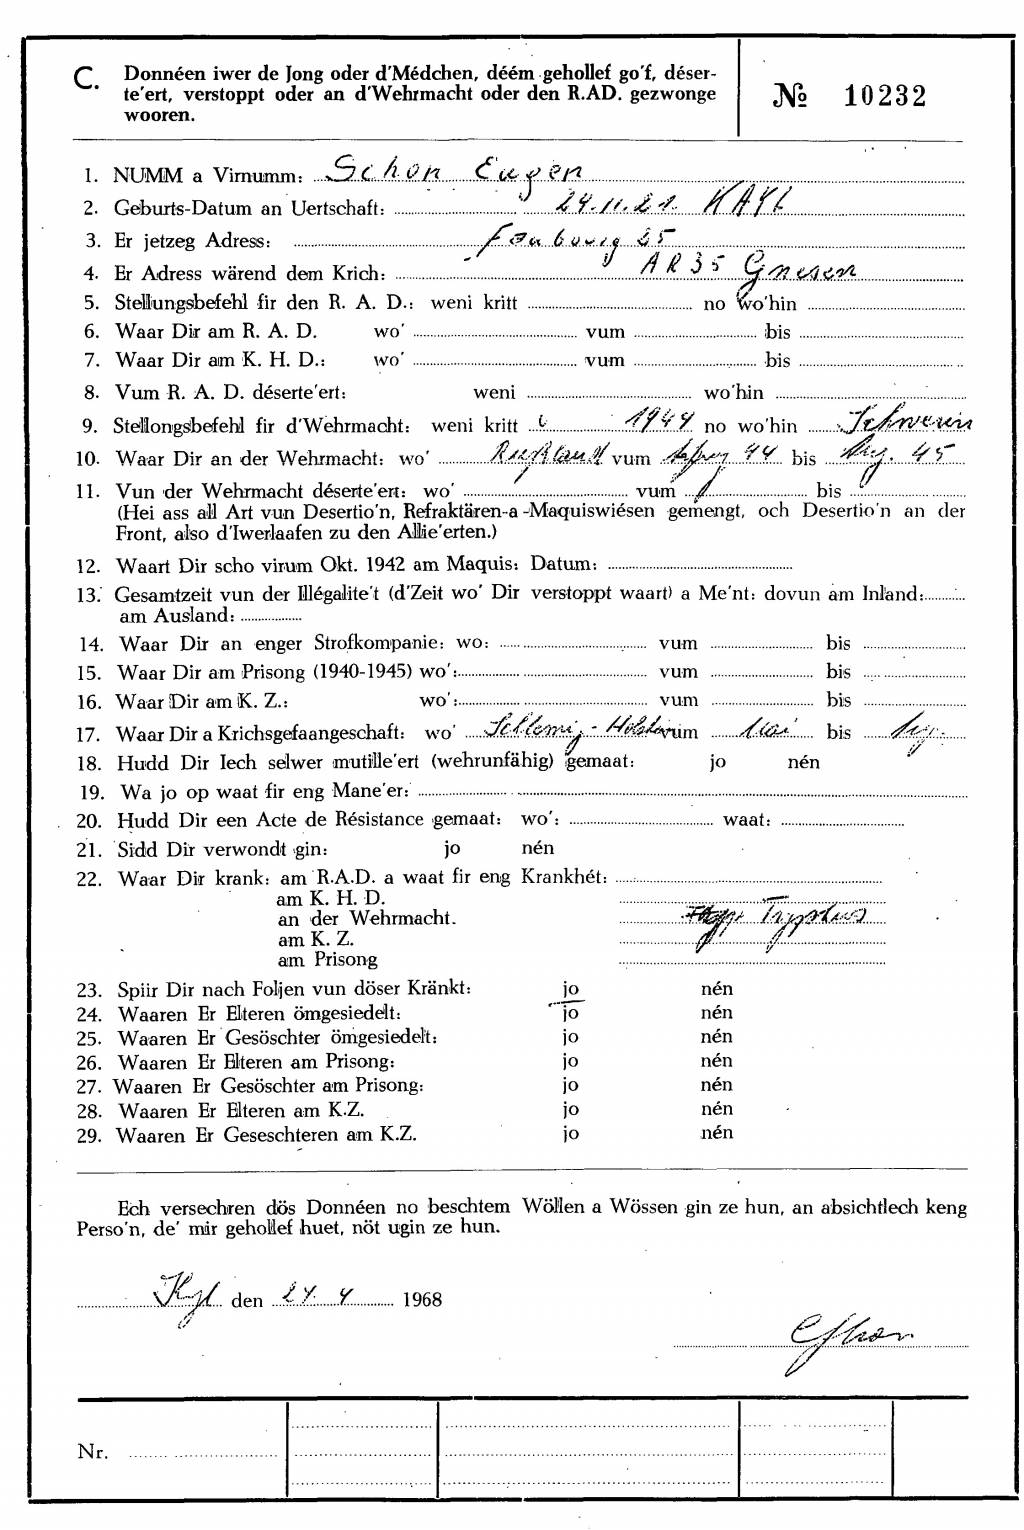 C. Donnéen iwer de Jong oder d'Médchen, déém gehollef go'f, déser-
te'ert, verstoppt oder an d'Wehrmacht oder den R.AD. gezwonge
wooren.
№ 10232
1. NUMM a Virnumm: Schon Eugen
2. Geburts-Datum an Uertschaft: 24.11.21. KAYL
3. Er jetzeg Adress: Faubourg 25
4. Er Adress wärend dem Krich: AR35 Gnesen
5. Stellungsbefehl fir den R. A. D.: weni kritt no wo'hin
6. Waar Dir am R. A. D. wo' vum bis
7. Waar Dir am K. H. D.: wo' vum bis
8. Vum R. A. D. déserte'ert: weni wo'hin
9. Stellongsbefehl fir d'Wehrmacht: weni kritt 1944 no wo'hin Schwerin
10. Waar Dir an der Wehrmacht: wo' Rußland vum 44 bis Aug. 45
11. Vun der Wehrmacht déserte'ert: wo' vum bis
(Hei ass all Art vun Desertio'n, Refraktären-a-Maquiswiésen gemengt, och Desertio'n an der
Front, also d'Iwerlaafen zu den Allie'erten.)
12. Waart Dir scho virum Okt. 1942 am Maquis: Datum:
13. Gesamtzeit vun der Illégalite't (d'Zeit wo' Dir verstoppt waart) a Me'nt: dovun am Inland:
am Ausland:
14. Waar Dir an enger Strofkompanie: wo: vum bis
15. Waar Dir am Prisong (1940-1945) wo': vum bis
16. Waar Dir am K. Z.: wo': vum bis
17. Waar Dir a Krichsgefaangeschaft: wo' Schleswig-Holstein vum Mai bis Aug.
18. Hudd Dir Iech selwer mutille'ert (wehrunfähig) gemaat: jo nén
19. Wa jo op waat fir eng Mane'er:
20. Hudd Dir een Acte de Résistance gemaat: wo': waat:
21. Sidd Dir verwondt gin: jo nén
22. Waar Dir krank: am R.A.D. a waat fir eng Krankhét:
am K. H. D.
an der Wehrmacht. Tryphus
am K. Z.
am Prisong
23. Spiir Dir nach Foljen vun döser Kränkt: jo nén
24. Waaren Er Elteren ömgesiedelt: jo nén
25. Waaren Er Gesöschter ömgesiedelt: jo nén
26. Waaren Er Elteren am Prisong: jo nén
27. Waaren Er Gesöschter am Prisong: jo nén
28. Waaren Er Elteren am K.Z. jo nén
29. Waaren Er Geseschteren am K.Z. jo nén
Ech versechren dös Donnéen no beschtem Wöllen a Wössen gin ze hun, an absichtlech keng
Perso'n, de' mir gehollef huet, nöt ugin ze hun.
Kayl den 24. 4 1968
Nr.